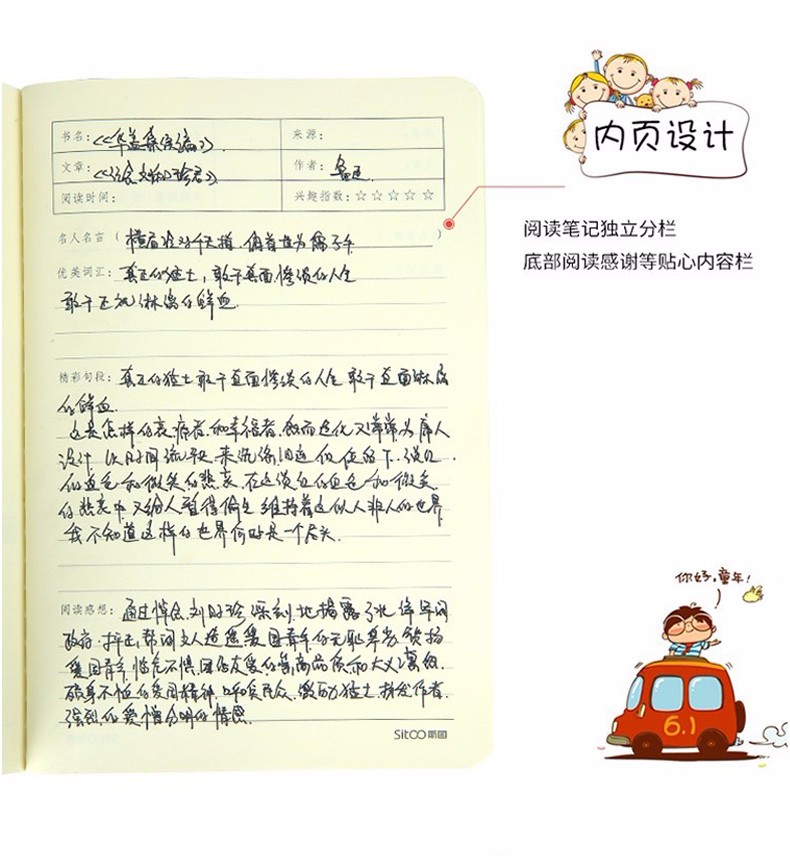 内页设计
阅读笔记独立分栏
底部阅读感谢等贴心内容栏
书名：《华盖集续编》 来源：
文章：《纪念刘和珍君》 作者：鲁迅
阅读时间： 兴趣指数：☆☆☆☆☆
名人名言（横眉冷对千夫指 俯首甘为孺子牛）
优美词汇：真正的猛士，敢于直面惨淡的人生
敢于正视淋漓的鲜血
精彩句段：真正的猛士敢于直面惨淡的人生 敢于直面淋漓
的鲜血
这是怎样的哀痛者 和幸福者 然而造化又常常为庸人
设计 以时间流驶 来洗涤旧迹 仅使留下 淡红
的血色和微笑的悲哀 在这淡红的血色和微笑
的悲哀中 又给人暂得偷生 维持着这似人非人的世界
我不知道这样的世界何时是一个尽头
阅读感想：通过悼念刘和珍 深刻地揭露了北洋军阀
政府 抨击帮闲文人 爱国青年的无耻 颂扬
爱国青年 临危不惧 团结友爱的崇高品质和大义
不恤的爱国精神 呼唤民众 激励猛士 抒发作者
强烈的爱憎分明的情感
Sitoo斯图
你好，童年！
6.1